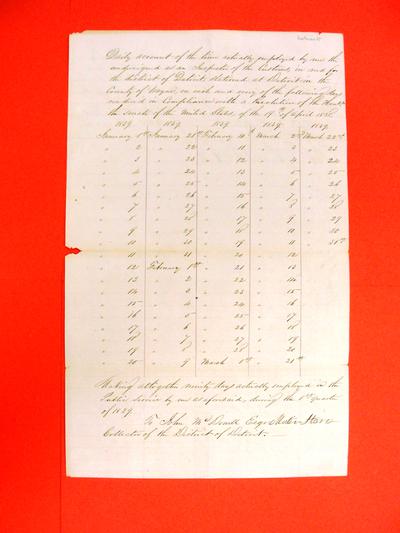 Daily account of the time actually employed by me the
undersigned as an Inspector of the Customs, in and for
the District of Detroit, Stationed at Detroit in the
County of Wayne, on each and every of the following days
required in Compliance with a Resolution of the
the Senate of the United States, of the 19th of April
1839. 1839. 1839. 1839. 1839.
January 1st January 21st February 10th March 2nd March 22nd
" 2 " 22 " 11 " 3 " 23
" 3 " 23 " 12 " 4 " 24
" 4 " 24 " 13 " 5 " 25
" 5 " 25 " 14 " 6 " 26
" 6 " 26 " 15 " 7 " 27
" 7 " 27 " 16 " 8 " 28
" 8 " 28 " 17 " 9 " 29
" 9 " 29 " 18 " 10 " 30
" 10 " 30 " 19 " 11 " 31st
" 11 " 31 " 20 " 12
" 12 February 1st " 21 " 13
" 13 " 2 " 22 " 14
" 14 " 3 " 23 " 15
" 15 " 4 " 24 " 16
" 16 " 5 " 25 " 17
" 17 " 6 " 26 " 18
" 18 " 7 " 27 " 19
" 19 " 8 " 28 " 20
" 20 " 9 March 1st " 21st
Making altogether ninety days actually employed in the
Public Service by me as aforesaid, during the 1st quarter
of 1839.
To John McDonell Esqr
Collector of the District of Detroit.